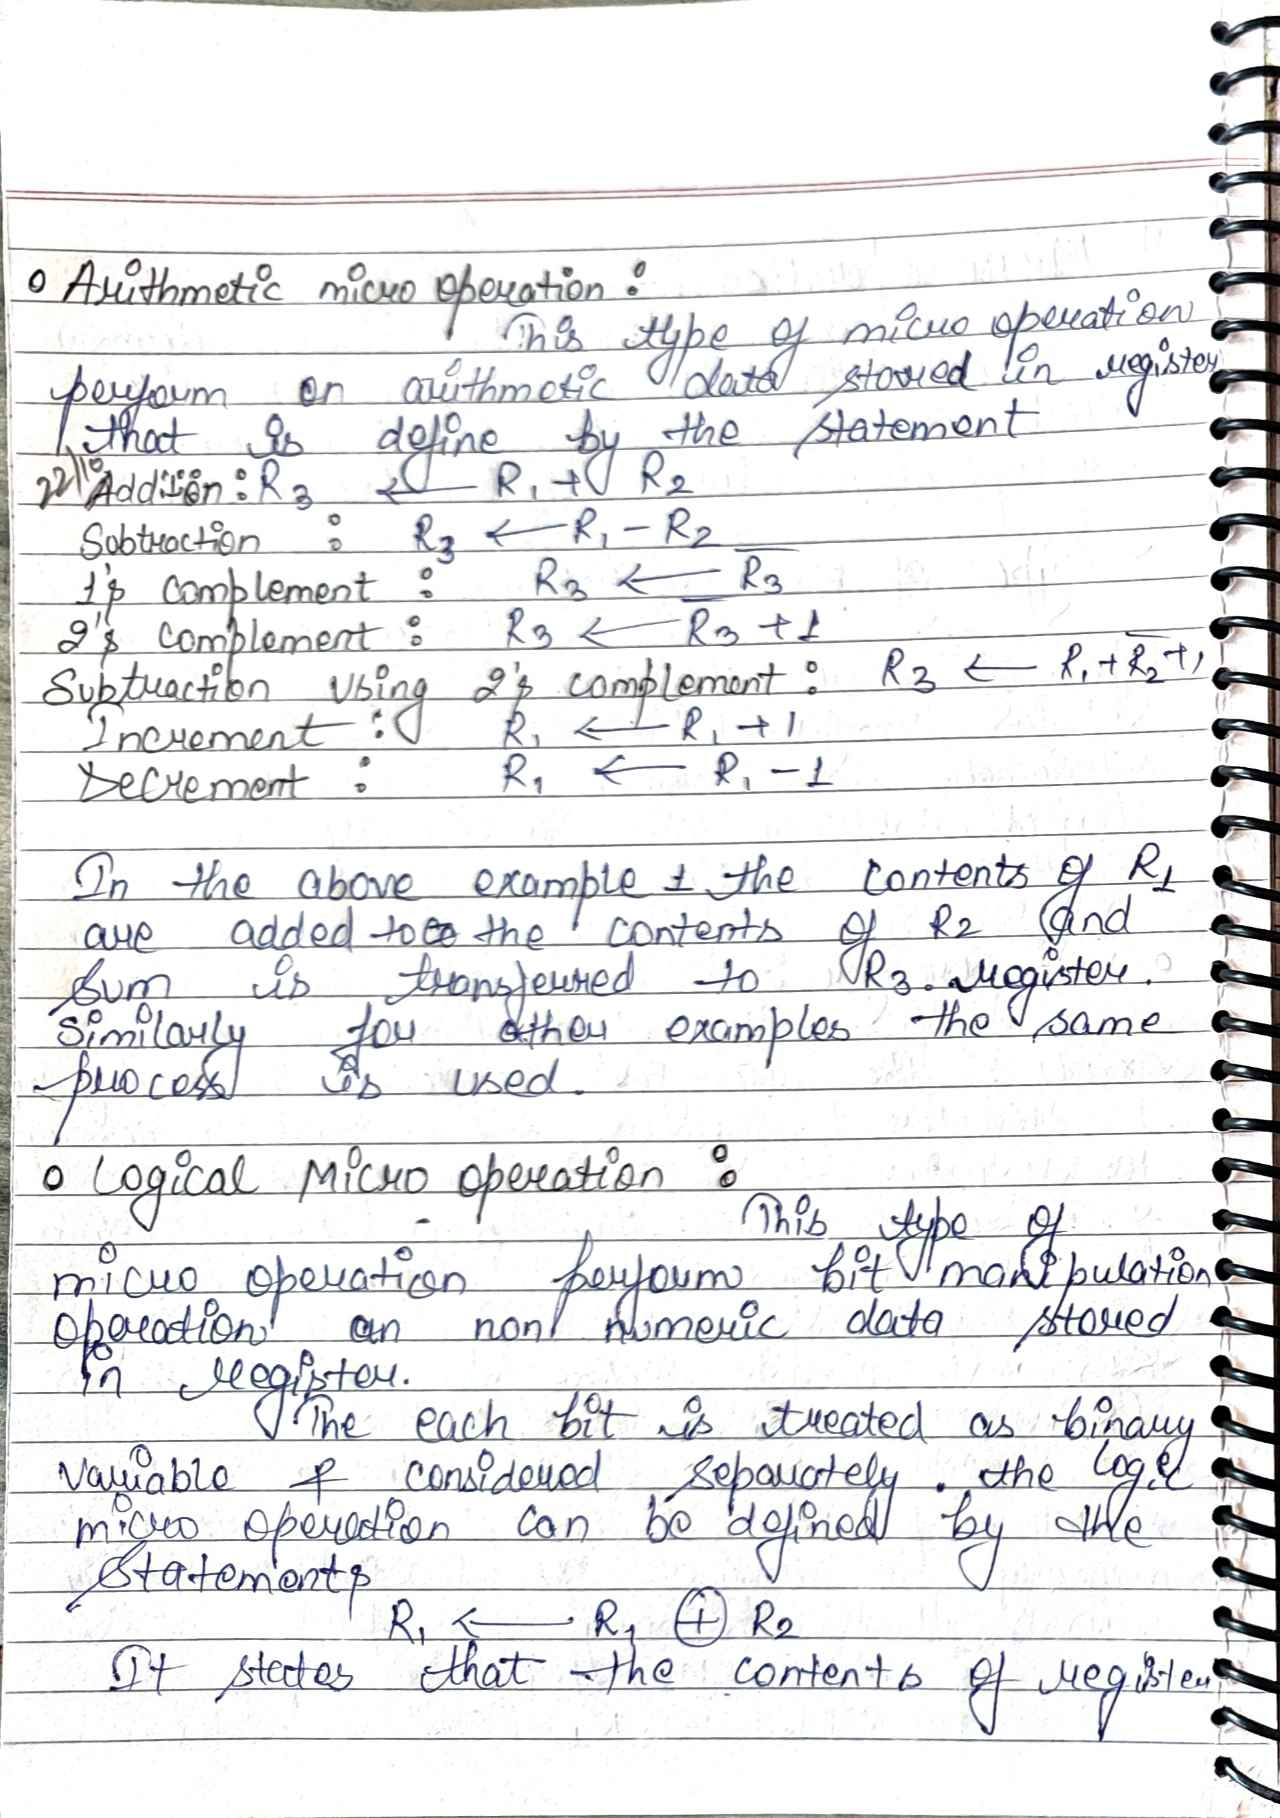 o Arithmetic micro operation :
This type of micro operation
perform on arithmetic data stored in register
that is define by the statement
22/10 Addition : R3 ← R1 + R2
Subtraction : R3 ← R1 - R2
1's complement : R3 ← R̅3̅
2's complement : R3 ← R̅3̅ + 1
Subtraction Using 2's complement : R3 ← R1 + R̅2̅ + 1
Increment : R1 ← R1 + 1
Decrement : R1 ← R1 - 1
In the above example 1 the contents of R1
are added to the contents of R2 and
sum is transferred to R3. register.
Similarly for other examples the same
process is used.
o Logical Micro operation :
This type of
micro operation perform bit manipulation
operation on non numeric data stored
in register.
The each bit is treated as binary
variable & considered separately. the logic
micro operation can be defined by the
statements
R1 ← R1 ⊕ R2
It states that the contents of register